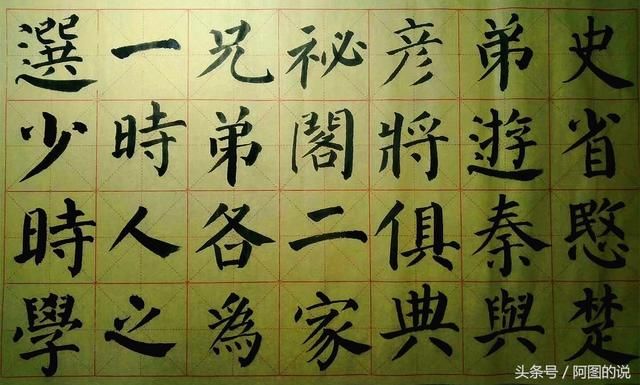 史省愍楚
弟遊秦與
彦將俱典
祕閣二家
兄弟各為
一時人之
選少時學
头条号 / 阿图的说